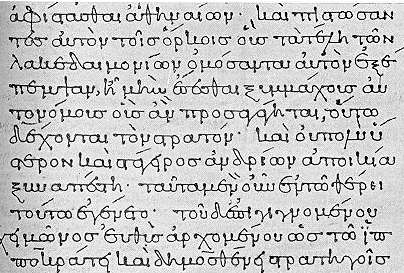 ἀφίστασθαι ἀθηναίων· καὶ πιστώσαν
τες αὐτὸν τοῖς ὅρκοις οὓς τὰ τέλη τῶν
λακεδαιμονίων ὀμόσαντα αὐτὸν ἐξε
πεμψαν, ἦ μὴν ἔσεσθαι ξυμμάχους αὐ
τονόμους οὓς ἂν προσαγάγηται, οὕτω
δέχονται τὸν στρατόν· καὶ οὐ πολὺ ὕ
στερον καὶ στάγειρος ἀνδρίων ἀποικία
ξυναπέστη· ταῦτα μὲν οὖν ἐν τῶ θέρει
τούτω ἐγένετο· τοῦ δ' ἐπιγιγνομένου
χειμῶνος εὐθὺς ἀρχομένου ὡς τῶ ἱπ
ποκράτει καὶ δημοσθένει στρατηγοῖς